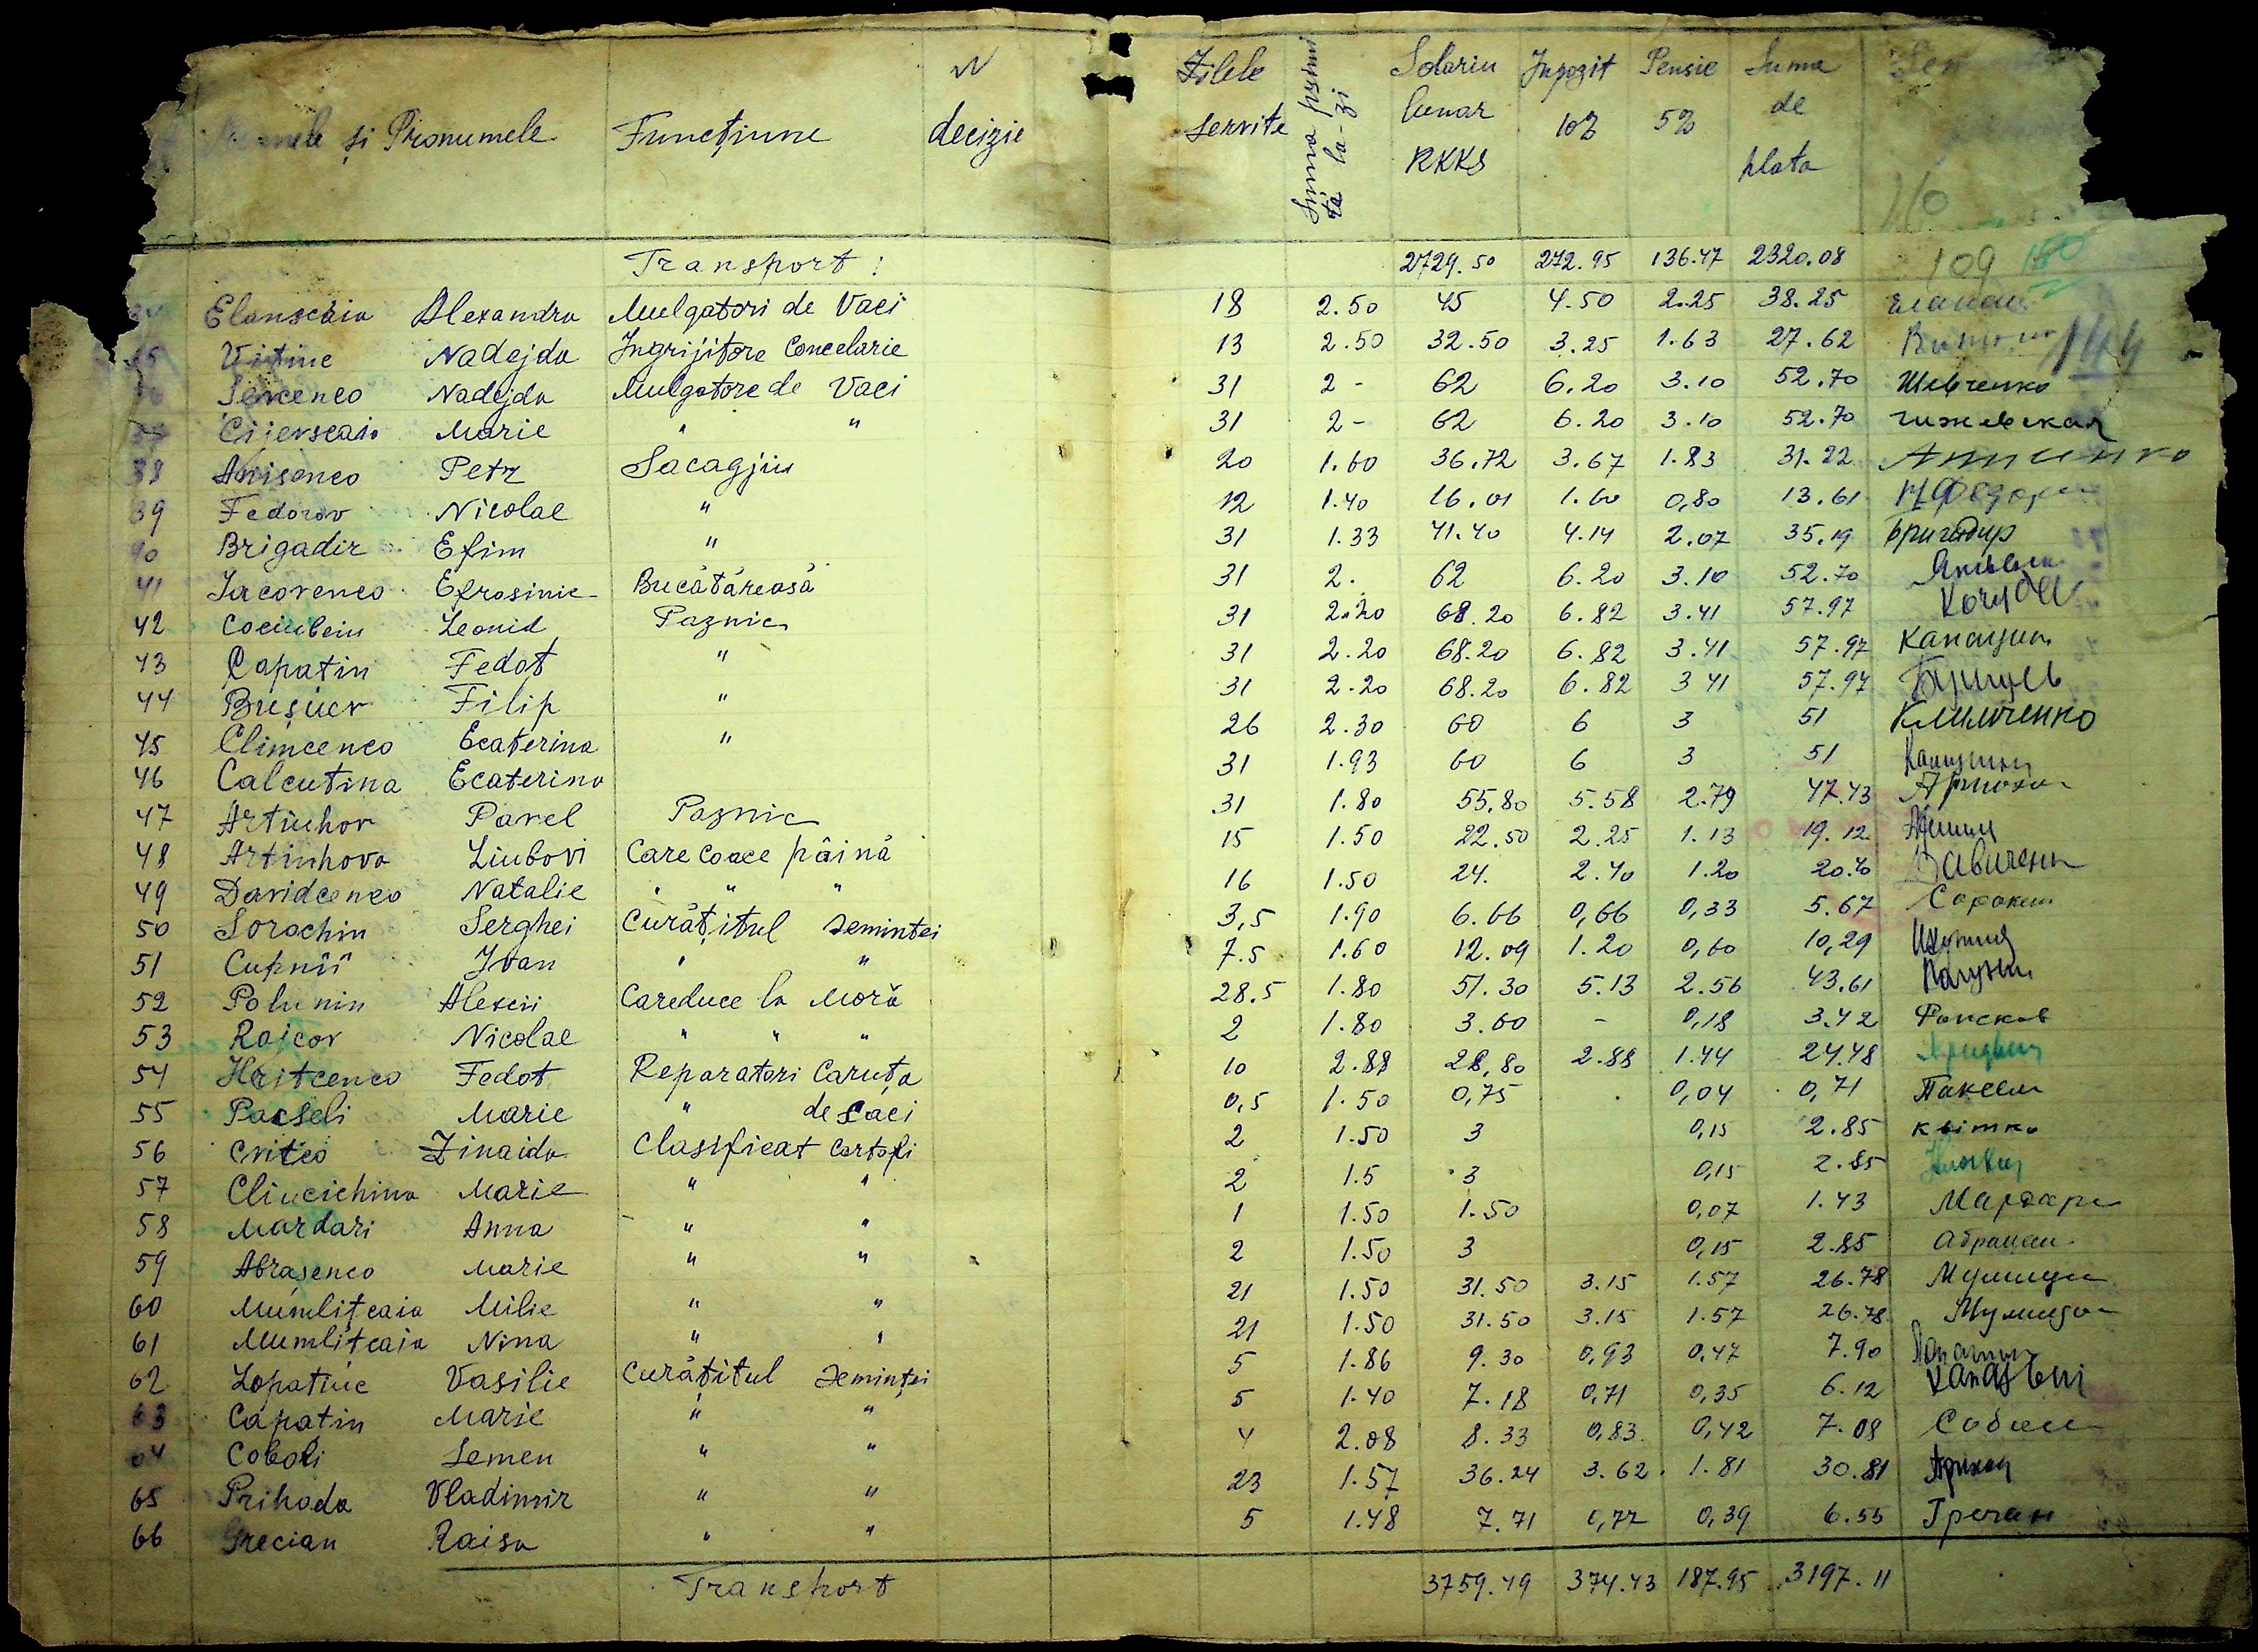 și Pronumele Funcțiune N decizie Zilele servite Suma primită la-zi Solariu lunar RKKS Inpozit 10% Pensie 5% Suma de plata Sem
110
Transport: 2729.50 272.95 136.47 2320.08 109 150
34 Elanscaia Alexandra Mulgatori de Vaci 18 2.50 45 4.50 2.25 38.25
35 Vitiuc Nadejda Ingrijitore Concelarie 13 2.50 32.50 3.25 1.63 27.62 144
36 Sevcenco Nadejda Mulgatore de Vaci 31 2- 62 6.20 3.10 52.70 Шевченко
37 Cijevscaia Marie " " 31 2- 62 6.20 3.10 52.70 чижевская
38 Anisenco Petr Sacagjiu 20 1.60 36.72 3.67 1.83 31.22
39 Fedorov Nicolae " 12 1.40 16.01 1.60 0,80 13.61
40 Brigadir Efim " 31 1.33 41.40 4.14 2.07 35.19 Бригадир
41 Iacovenco Efrosinie Bucătăreasă 31 2. 62 6.20 3.10 52.70
42 Cociubeiu Leonid Paznic 31 2.20 68.20 6.82 3.41 57.97
43 Capatin Fedot " 31 2.20 68.20 6.82 3.41 57.97 Капацин
44 Bușuev Filip " 31 2.20 68.20 6.82 3 41 57.97
45 Climcenco Ecaterina " 26 2.30 60 6 3 51 Климченко
46 Calcutina Ecaterina 31 1.93 60 6 3 51
47 Artiuhov Pavel Paznic 31 1.80 55.80 5.58 2.79 47.43
48 Artiuhova Liubovi Care coace pâină 15 1.50 22.50 2.25 1.13 19.12
49 Davidcenco Natalie " " " 16 1.50 24. 2.40 1.20 20.40
50 Sorochin Serghei Curățitul semintei 3,5 1.90 6.66 0,66 0,33 5.67 Сорокин
51 Cupnii Ivan " " 7.5 1.60 12.09 1.20 0,60 10,29
52 Polunin Alexeii Careduce la Moră 28.5 1.80 51.30 5.13 2.56 43.61
53 Raicov Nicolae " " " 2 1.80 3.60 - 0,18 3.42
54 Hritcenco Fedot Reparatori Caruța 10 2.88 28,80 2.88 1.44 24.48
55 Pacseli Marie " de saci 0,5 1.50 0,75 . 0,04 0,71
56 Cvitco Zinaida Clasificat Cartofi 2 1.50 3 0,15 2.85 квитко
57 Cliucichina Marie " " 2 1.5 3 0,15 2.85
58 Mardari Anna " " 1 1.50 1.50 0,07 1.43 Мардари
59 Abrașenco Marie " " 2 1.50 3 0,15 2.85
60 Mumlițcaia Milie " " 21 1.50 31.50 3.15 1.57 26.78
61 Mumlițcaia Nina " " 21 1.50 31.50 3.15 1.57 26.78
62 Lopatiuc Vasilie Curățitul semintei 5 1.86 9.30 0,93 0,47 7.90
63 Capatin Marie " " 5 1.40 7.18 0,71 0,35 6.12
64 Coboli Semen " " 4 2.08 8.33 0,83 0,42 7.08
65 Prihoda Vladimir " " 23 1.57 36.24 3.62 1.81 30.81
66 Grecian Raisa " " 5 1.48 7.71 0,77 0,39 6.55 Гречан
Transport 3759.49 374.43 187.95 3197.11